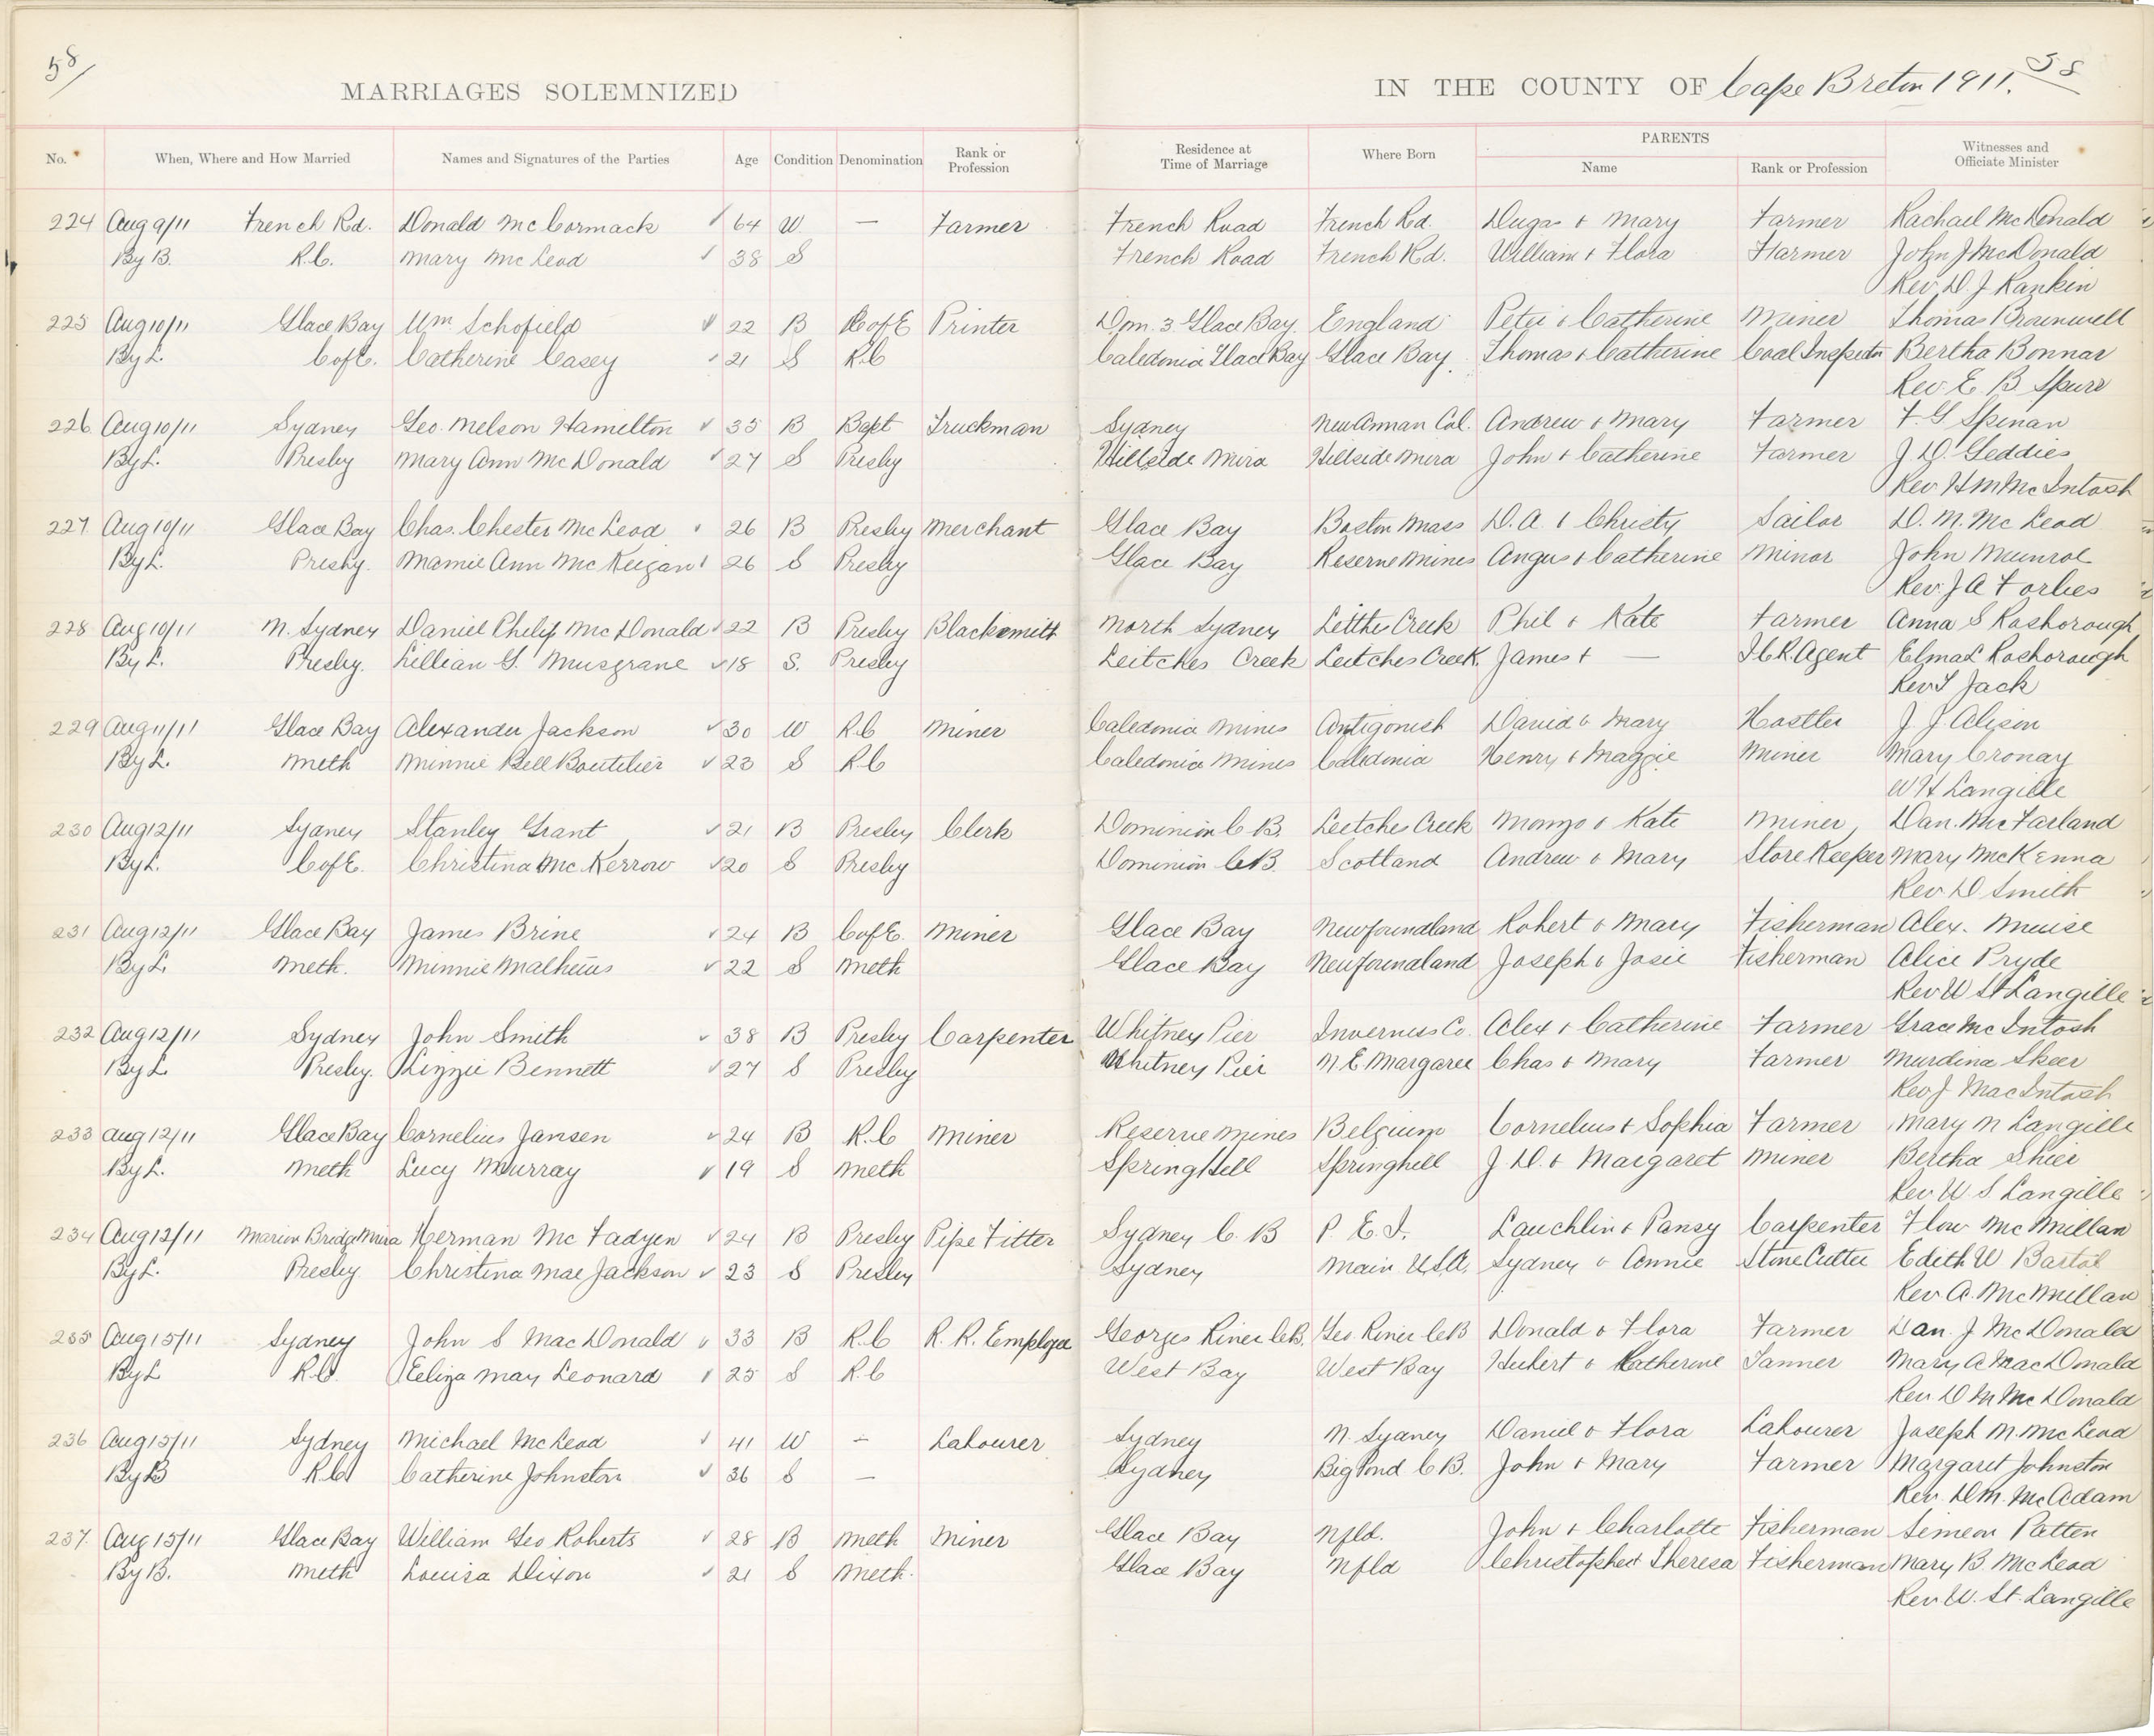 58/
58
MARRIAGES SOLEMNIZED IN THE COUNTY OF Cape Breton 1911.
No. When, Where and How Married Names and Signatures of the Parties Age Condition Denomination Rank or Profession Residence at Time of Marriage Where Born PARENTS Name Rank or Profession Witnesses and Officiate Minister
224 Aug 9/11 French Rd. Donald McCormack 64 W — Farmer French Road French Rd. Dugas + Mary Farmer Rachael McDonald
By B. R.C. Mary McLeod 38 S French Road French Rd. William + Flora Farmer John J McDonald
Rev. D. J Rankin
225 Aug 10/11 Glace Bay Wm. Schofield 22 B C of E Printer Dom. 3 Glace Bay. England Peter + Catherine Miner Thomas Brownwell
By L. C of E. Catherine Casey 21 S R.C Caledonia Glace Bay Glace Bay. Thomas + Catherine Coal Inspector Bertha Bonnar
Rev. E. B Spurr
226. Aug 10/11 Sydney Geo. Nelson Hamilton 35 B Bapt Truckman Sydney New Annan Col. Andrew + Mary Farmer F. G Spinan
By L. Presby Mary Ann McDonald 27 S Presby Hillside Mira Hillside Mira John + Catherine Farmer J. D. Geddies
Rev. H M McIntosh
227 Aug 10/11 Glace Bay Chas. Chester McLeod 26 B Presby Merchant Glace Bay Boston Mass D. A. + Christy Sailor D. M. McLeod
By L. Presby. Mamie Ann McKeigan 26 S Presby Glace Bay Reserve Mines Angus + Catherine Minor John Munroe
Rev. J A Forbes
228 Aug 10/11 N. Sydney Daniel Philip McDonald 22 B Presby Blacksmith North Sydney Leithe Creek Phil + Kate Farmer Anna S Rosborough
By L. Presby. Lillian G. Musgrave 18 S. Presby Leitches Creek Leitches Creek. James + — I.C.R. Agent Elma L Rosborough
Rev T Jack
229 Aug 11/11 Glace Bay Alexander Jackson 30 W R.C Miner Caledonia Mines Antigonish David & Mary Hostler J. J Alison
By L. Meth Minnie Bell Boutilier 23 S R.C Caledonia Mines Caledonia Henry + Maggie Miner Mary Cronay
W H Langille
230 Aug 12/11 Sydney Stanley Grant 21 B Presby Clerk Dominion C.B. Leitches Creek Mongo & Kate Miner Dan. McFarland
By L. C of E. Christina McKerrow 20 S Presby Dominion C.B. Scotland Andrew & Mary Store Keeper Mary McKenna
Rev D Smith
231 Aug 12/11 Glace Bay James Brine 24 B C of E. Miner Glace Bay Newfoundland Robert & Mary Fisherman Alex. Muise
By L. Meth. Minnie Malheus 22 S Meth Glace Bay Newfoundland Joseph & Josie Fisherman Alice Pryde
Rev W St Langille
232 Aug 12/11 Sydney John Smith 38 B Presby Carpenter Whitney Pier Inverness Co. Alex + Catherine Farmer Grace McIntosh
By L. Presby. Lizzie Bennett 27 S Presby Whitney Pier N. E Margaree Chas & Mary Farmer Murdina Skeer
Rev J MacIntosh
233 Aug 12/11 Glace Bay Cornelius Jansen 24 B R.C Miner Reserve Mines Belgium Cornelius + Sophia Farmer Mary M Langille
By L. Meth Lucy Murray 19 S Meth Springhill Springhill J. D. & Margaret Miner Bertha Shier
Rev. W. S. Langille
234 Aug 12/11 Marion Bridge Mira Herman McFadyen 24 B Presby Pipe Fitter Sydney C. B P. E. I. Lauchlin + Pansy Carpenter Flow McMillan
By L. Presby. Christina Mae Jackson 23 S Presby Sydney Main U.S.A. Sydney & Annie Stone Cutter Edith W Bartol
Rev A. McMillan
235 Aug 15/11 Sydney John S MacDonald 33 B R.C R. R. Employee Georges River C.B. Geo. River C B Donald & Flora Farmer Dan. J McDonald
By L R.C. Eliza May Leonard 25 S R.C West Bay West Bay Hubert & Katherine Tanner Mary A MacDonald
Rev. D M McDonald
236 Aug 15/11 Sydney Michael McLeod 41 W — Labourer Sydney N. Sydney Daniel & Flora Labourer Joseph M. McLeod
By B R.C Catherine Johnston 36 S — Sydney Big Pond C B. John + Mary Farmer Margaret Johnston
Rev. D M. McAdam
237. Aug 15/11 Glace Bay William Geo Roberts 28 B Meth Miner Glace Bay Nfld. John + Charlotte Fisherman Simeon Patten
By B. Meth Louisa Dixon 21 S Meth. Glace Bay Nfld Christopher + Theresa Fisherman Mary B. McLeod
Rev. W. St. Langille